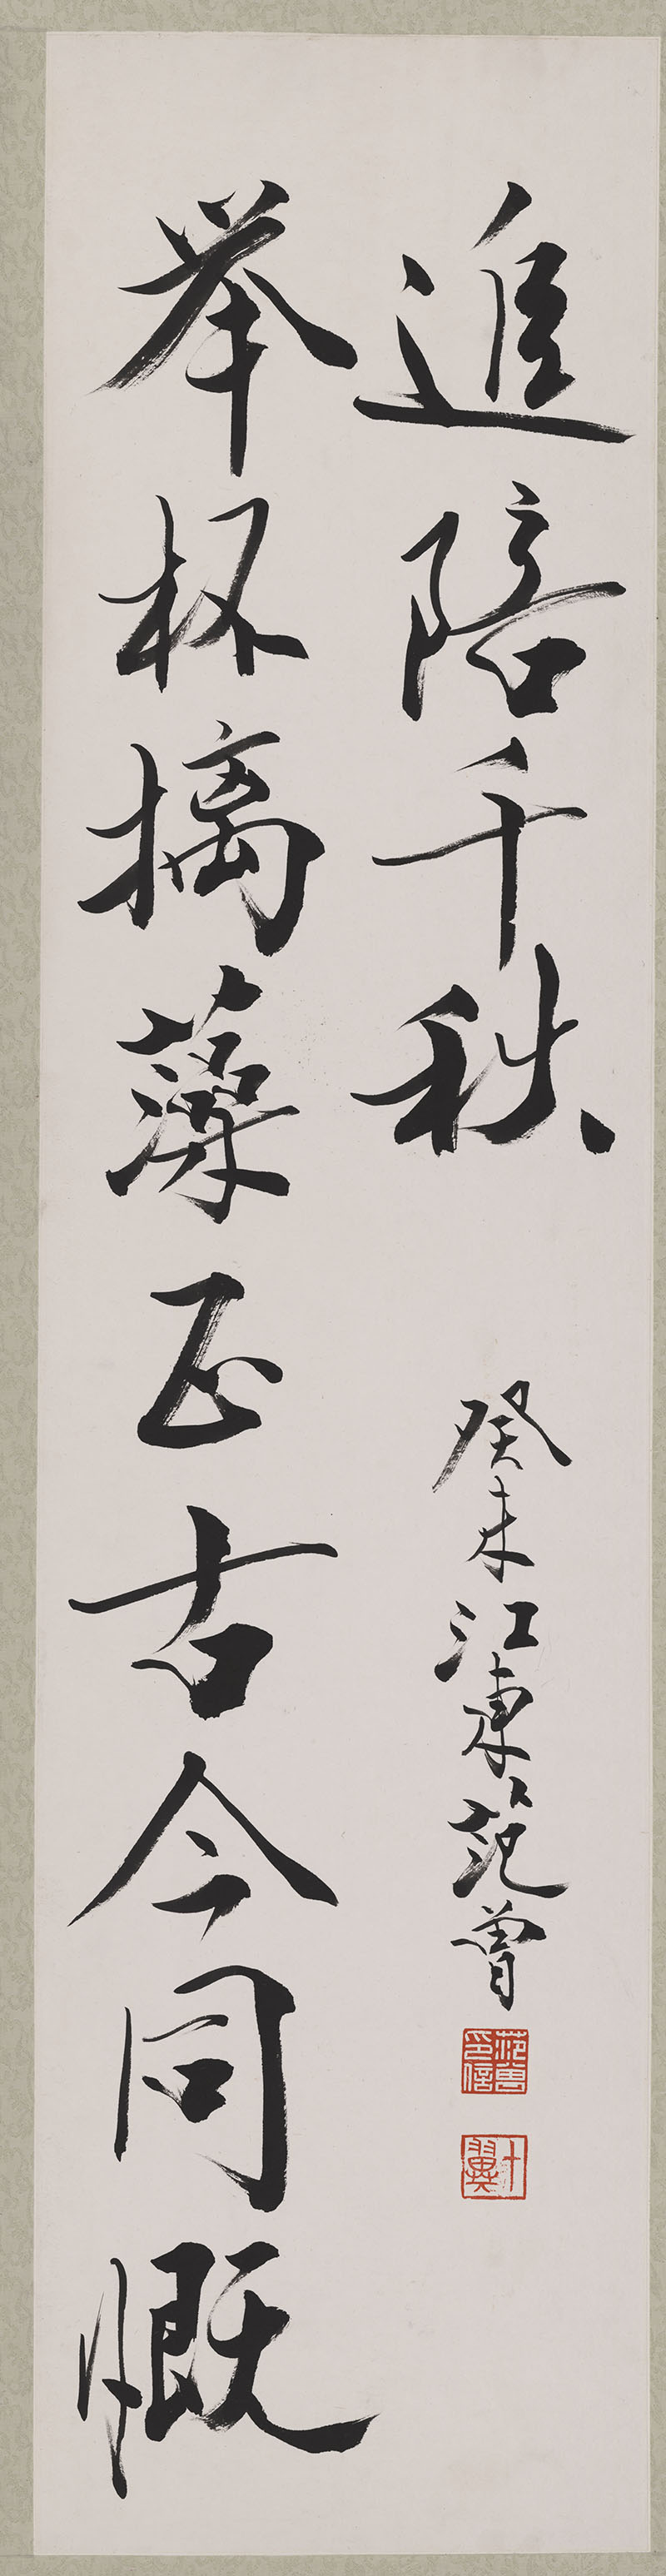 举杯摛藻正古今同慨
追陪千秩
癸未江東范曾
范曾印信
十翼